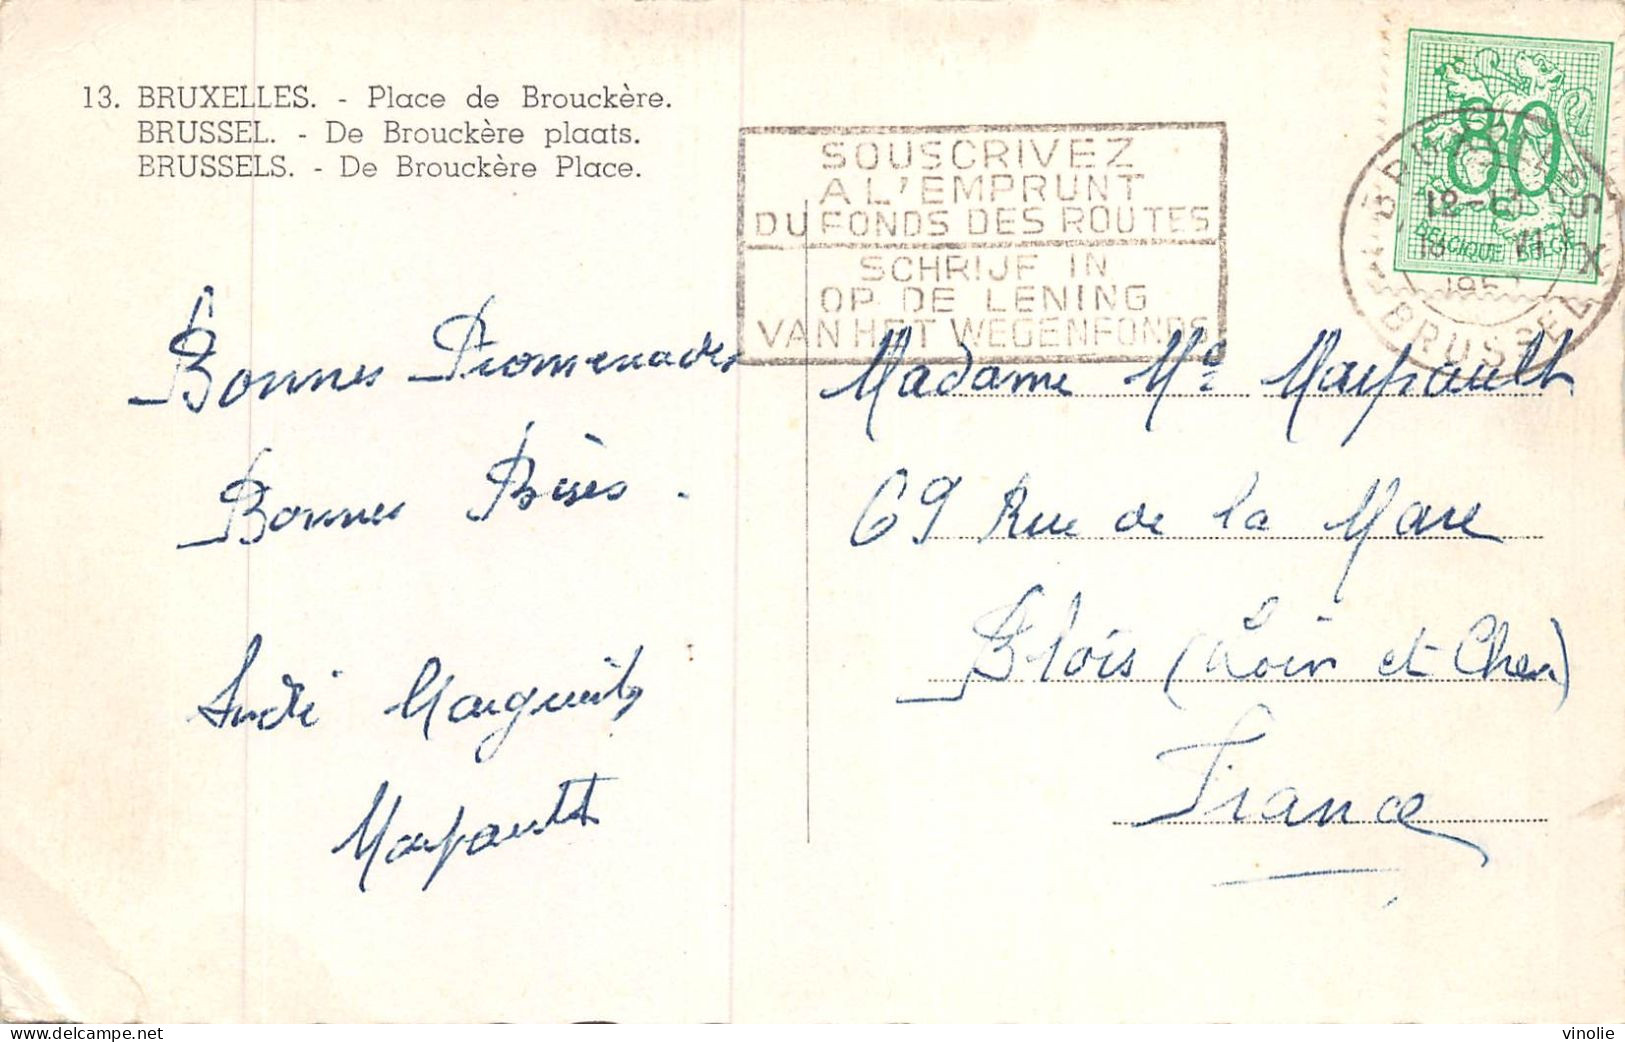 13. BRUXELLES. - Place de Brouckère.
BRUSSEL. - De Brouckère plaats.
BRUSSELS. - De Brouckère Place.
SOUSCRIVEZ
A L'EMPRUNT
DU FONDS DES ROUTES
SCHRIJF IN
OP DE LENING
VAN HET WEGENFONDS
80
BELGIQUE BELGIE
BRUXELLES X
BRUSSEL
Bonnes Promenades
Bonnes Bises.
André Marguerite
Marpault
Madame Me Marpault
69 Rue de la Mare
Blois (Loir et Cher)
France
vinolie